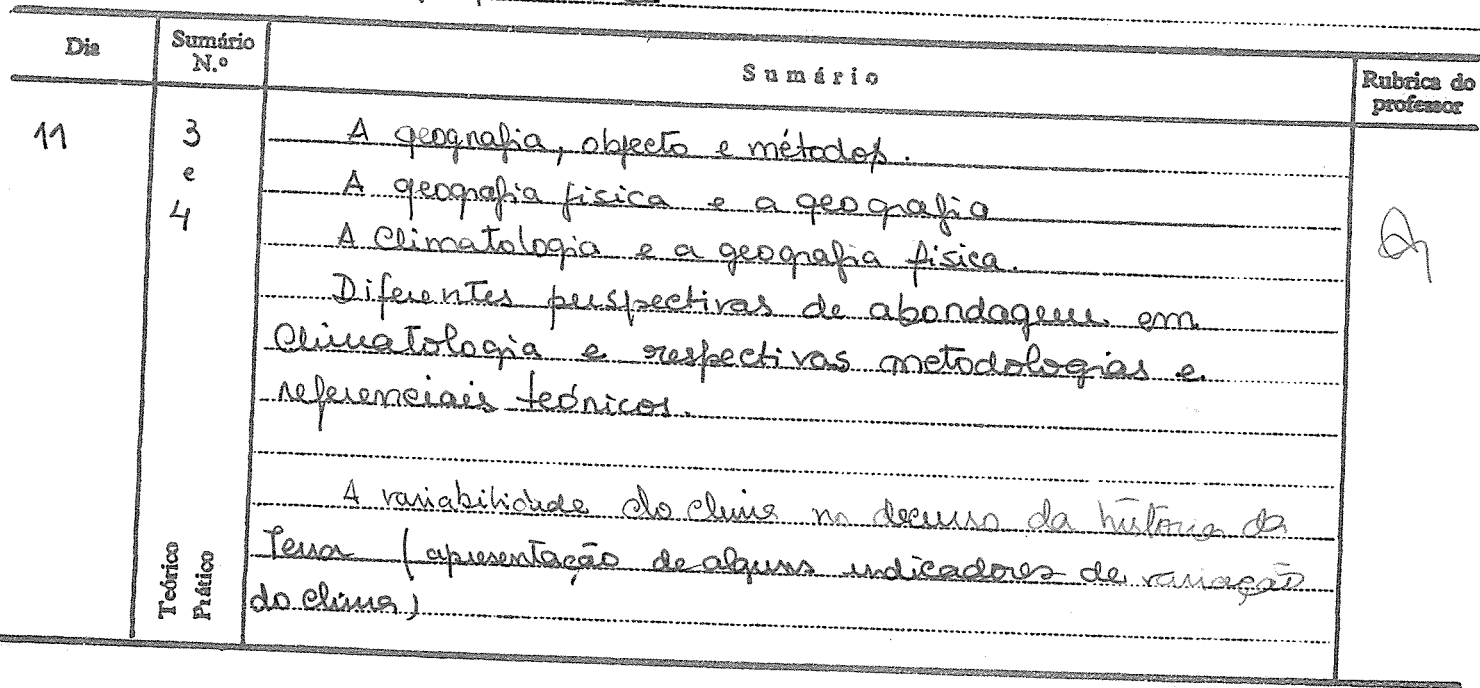 Dia
Sumário N.º
Sumário
Rubrica do professor
11
3 e 4
A geografia, objecto e métodos.
A geografia física e a geografia
A Climatologia e a geografia física.
Diferentes perspectivas de abordagem em
Climatologia e respectivas metodologias e
referenciais teóricos.
A variabilidade do clima no decurso da história da
Terra (apresentação de alguns indicadores de variação
do clima)
Teórico
Prático